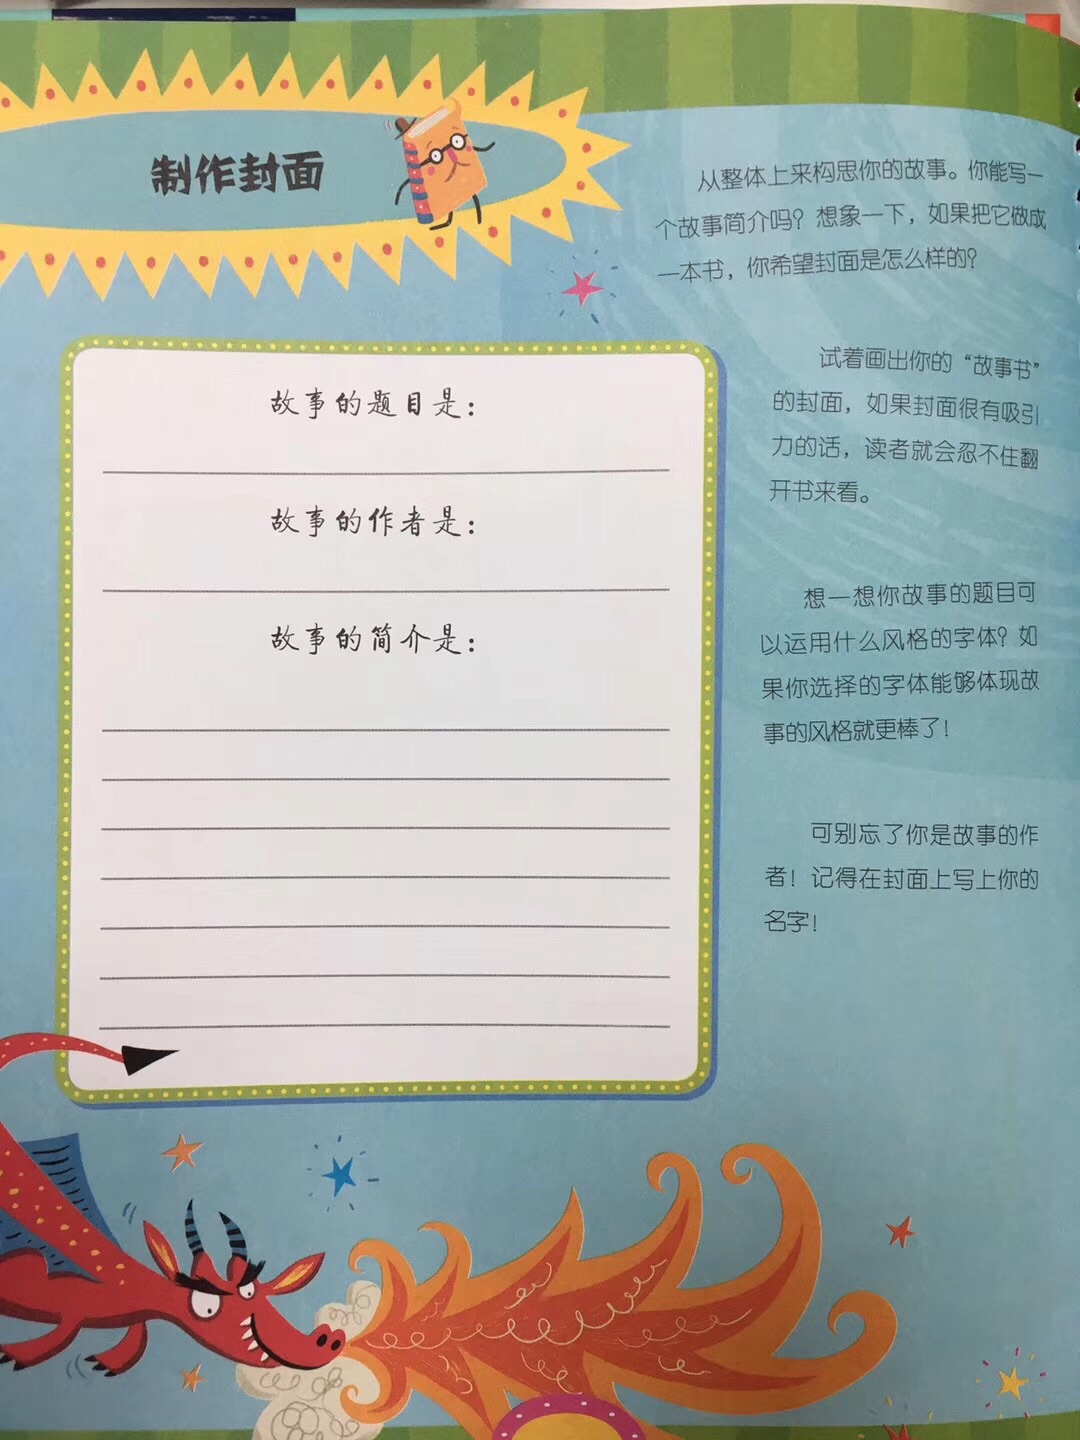 制作封面
从整体上来构思你的故事。你能写一
个故事简介吗？想象一下，如果把它做成
一本书，你希望封面是怎么样的？
故事的题目是：
故事的作者是：
故事的简介是：
试着画出你的“故事书”
的封面，如果封面很有吸引
力的话，读者就会忍不住翻
开书来看。
想一想你故事的题目可
以运用什么风格的字体？如
果你选择的字体能够体现故
事的风格就更棒了！
可别忘了你是故事的作
者！记得在封面上写上你的
名字！